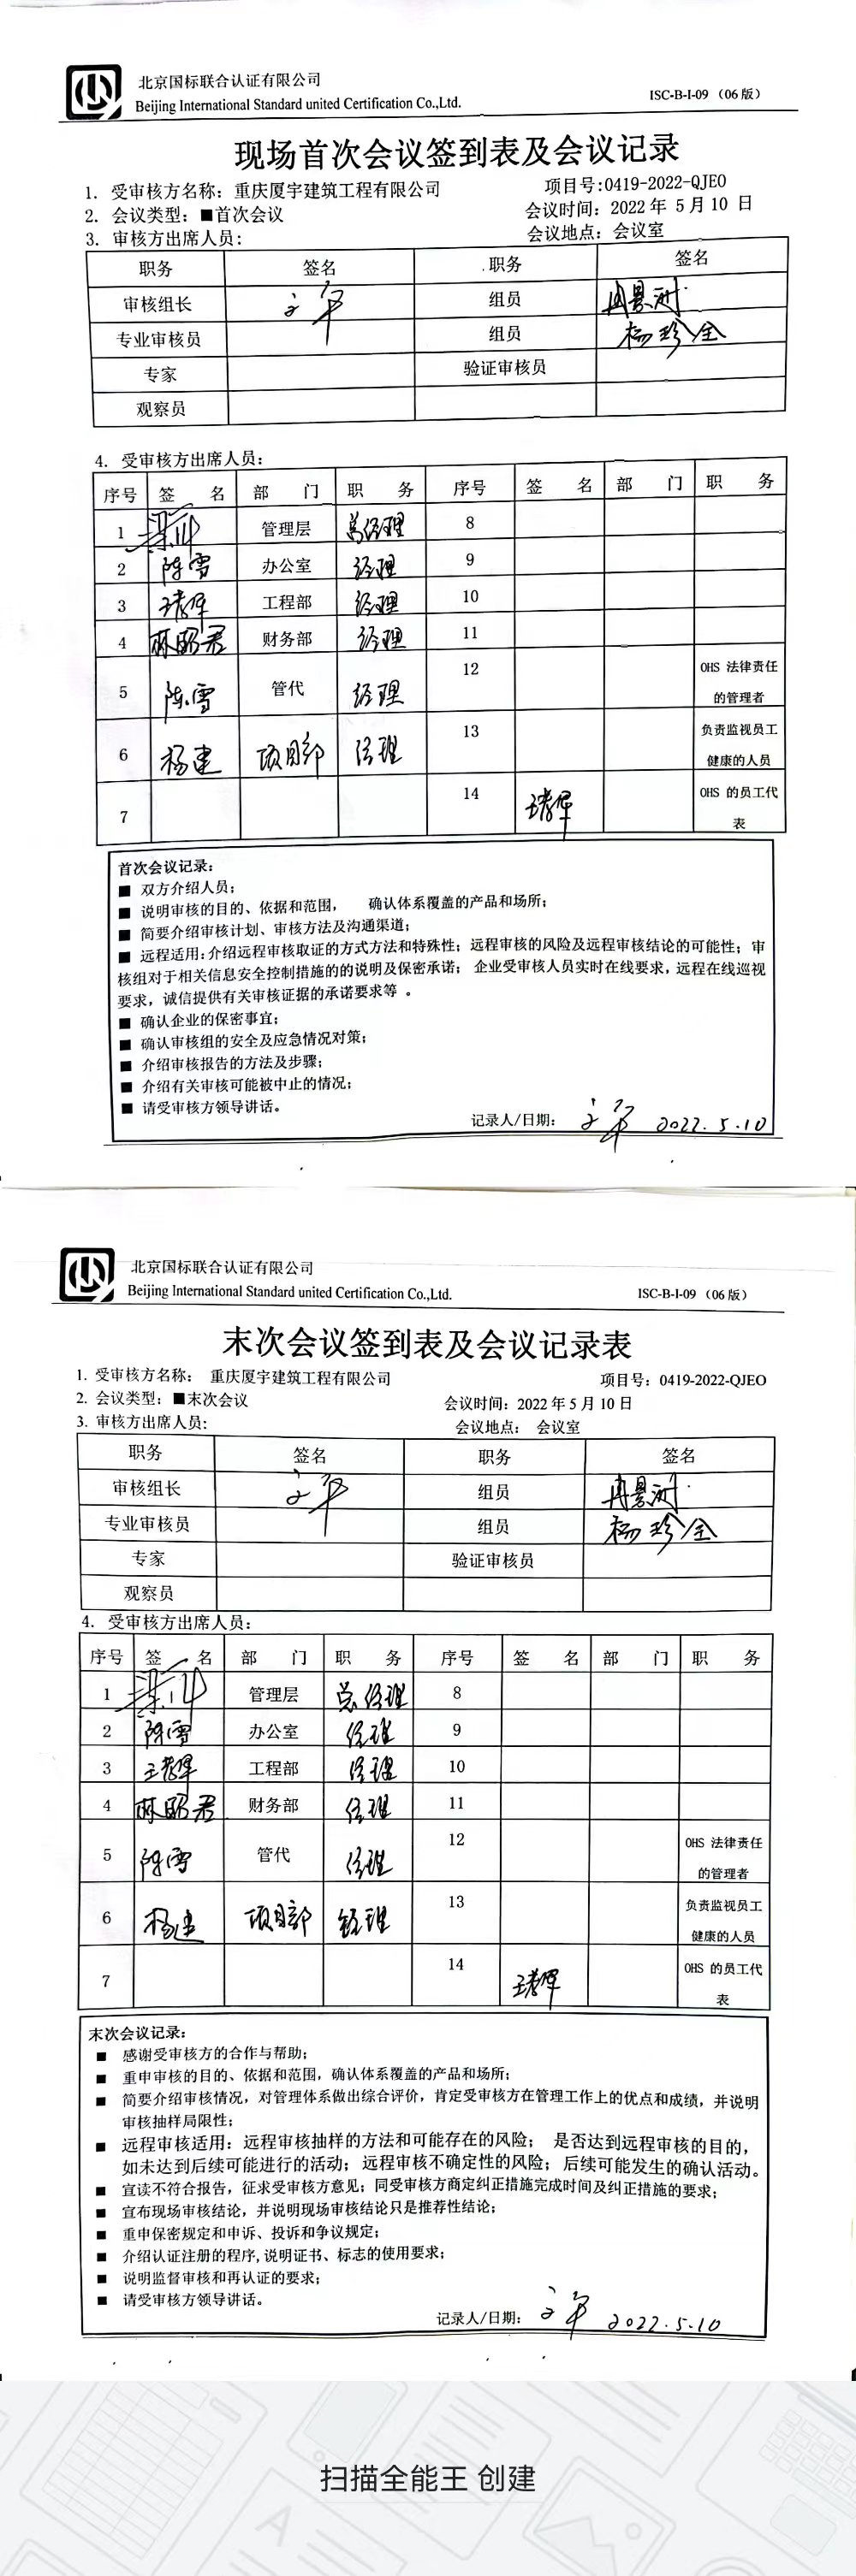 北京国标联合认证有限公司
Beijing International Standard united Certification Co.,Ltd. ISC-B-I-09 （06 版）
现场首次会议签到表及会议记录
1. 受审核方名称：重庆厦宇建筑工程有限公司 项目号:0419-2022-QJEO
2. 会议类型：■首次会议 会议时间：2022 年 5 月 10 日
3. 审核方出席人员： 会议地点：会议室
职务 签名 职务 签名
审核组长 组员
专业审核员 组员 杨珍全
专家 验证审核员
观察员
4. 受审核方出席人员：
序号 签 名 部 门 职 务 序号 签 名 部 门 职 务
1 管理层 总经理 8
2 陈雪 办公室 经理 9
3 工程部 经理 10
4 林昭君 财务部 经理 11
5 陈雪 管代 经理 12 OHS 法律责任
的管理者
6 杨建 项目部 经理 13 负责监视员工
健康的人员
7 14 OHS 的员工代
表
首次会议记录：
■ 双方介绍人员；
■ 说明审核的目的、依据和范围， 确认体系覆盖的产品和场所；
■ 简要介绍审核计划、审核方法及沟通渠道；
■ 远程适用：介绍远程审核取证的方式方法和特殊性；远程审核的风险及远程审核结论的可能性；审
核组对于相关信息安全控制措施的的说明及保密承诺； 企业受审核人员实时在线要求，远程在线巡视
要求，诚信提供有关审核证据的承诺要求等 。
■ 确认企业的保密事宜；
■ 确认审核组的安全及应急情况对策；
■ 介绍审核报告的方法及步骤；
■ 介绍有关审核可能被中止的情况；
■ 请受审核方领导讲话。
记录人/日期： 2022.5.10
北京国标联合认证有限公司
Beijing International Standard united Certification Co.,Ltd. ISC-B-I-09 （06 版）
末次会议签到表及会议记录表
1. 受审核方名称： 重庆厦宇建筑工程有限公司 项目号：0419-2022-QJEO
2. 会议类型：■末次会议 会议时间：2022 年 5 月 10 日
3. 审核方出席人员： 会议地点： 会议室
职务 签名 职务 签名
审核组长 组员
专业审核员 组员 杨珍全
专家 验证审核员
观察员
4. 受审核方出席人员：
序号 签 名 部 门 职 务 序号 签 名 部 门 职 务
1 管理层 总经理 8
2 陈雪 办公室 经理 9
3 工程部 经理 10
4 林昭君 财务部 经理 11
5 陈雪 管代 经理 12 OHS 法律责任
的管理者
6 杨建 项目部 经理 13 负责监视员工
健康的人员
7 14 OHS 的员工代
表
末次会议记录：
■ 感谢受审核方的合作与帮助；
■ 重申审核的目的、依据和范围，确认体系覆盖的产品和场所；
■ 简要介绍审核情况，对管理体系做出综合评价，肯定受审核方在管理工作上的优点和成绩，并说明
审核抽样局限性；
■ 远程审核适用：远程审核抽样的方法和可能存在的风险； 是否达到远程审核的目的，
如未达到后续可能进行的活动；远程审核不确定性的风险；后续可能发生的确认活动。
■ 宣读不符合报告，征求受审核方意见；同受审核方商定纠正措施完成时间及纠正措施的要求；
■ 宣布现场审核结论，并说明现场审核结论只是推荐性结论；
■ 重申保密规定和申诉、投诉和争议规定；
■ 介绍认证注册的程序,说明证书、标志的使用要求；
■ 说明监督审核和再认证的要求；
■ 请受审核方领导讲话。
记录人/日期： 2022.5.10
扫描全能王 创建